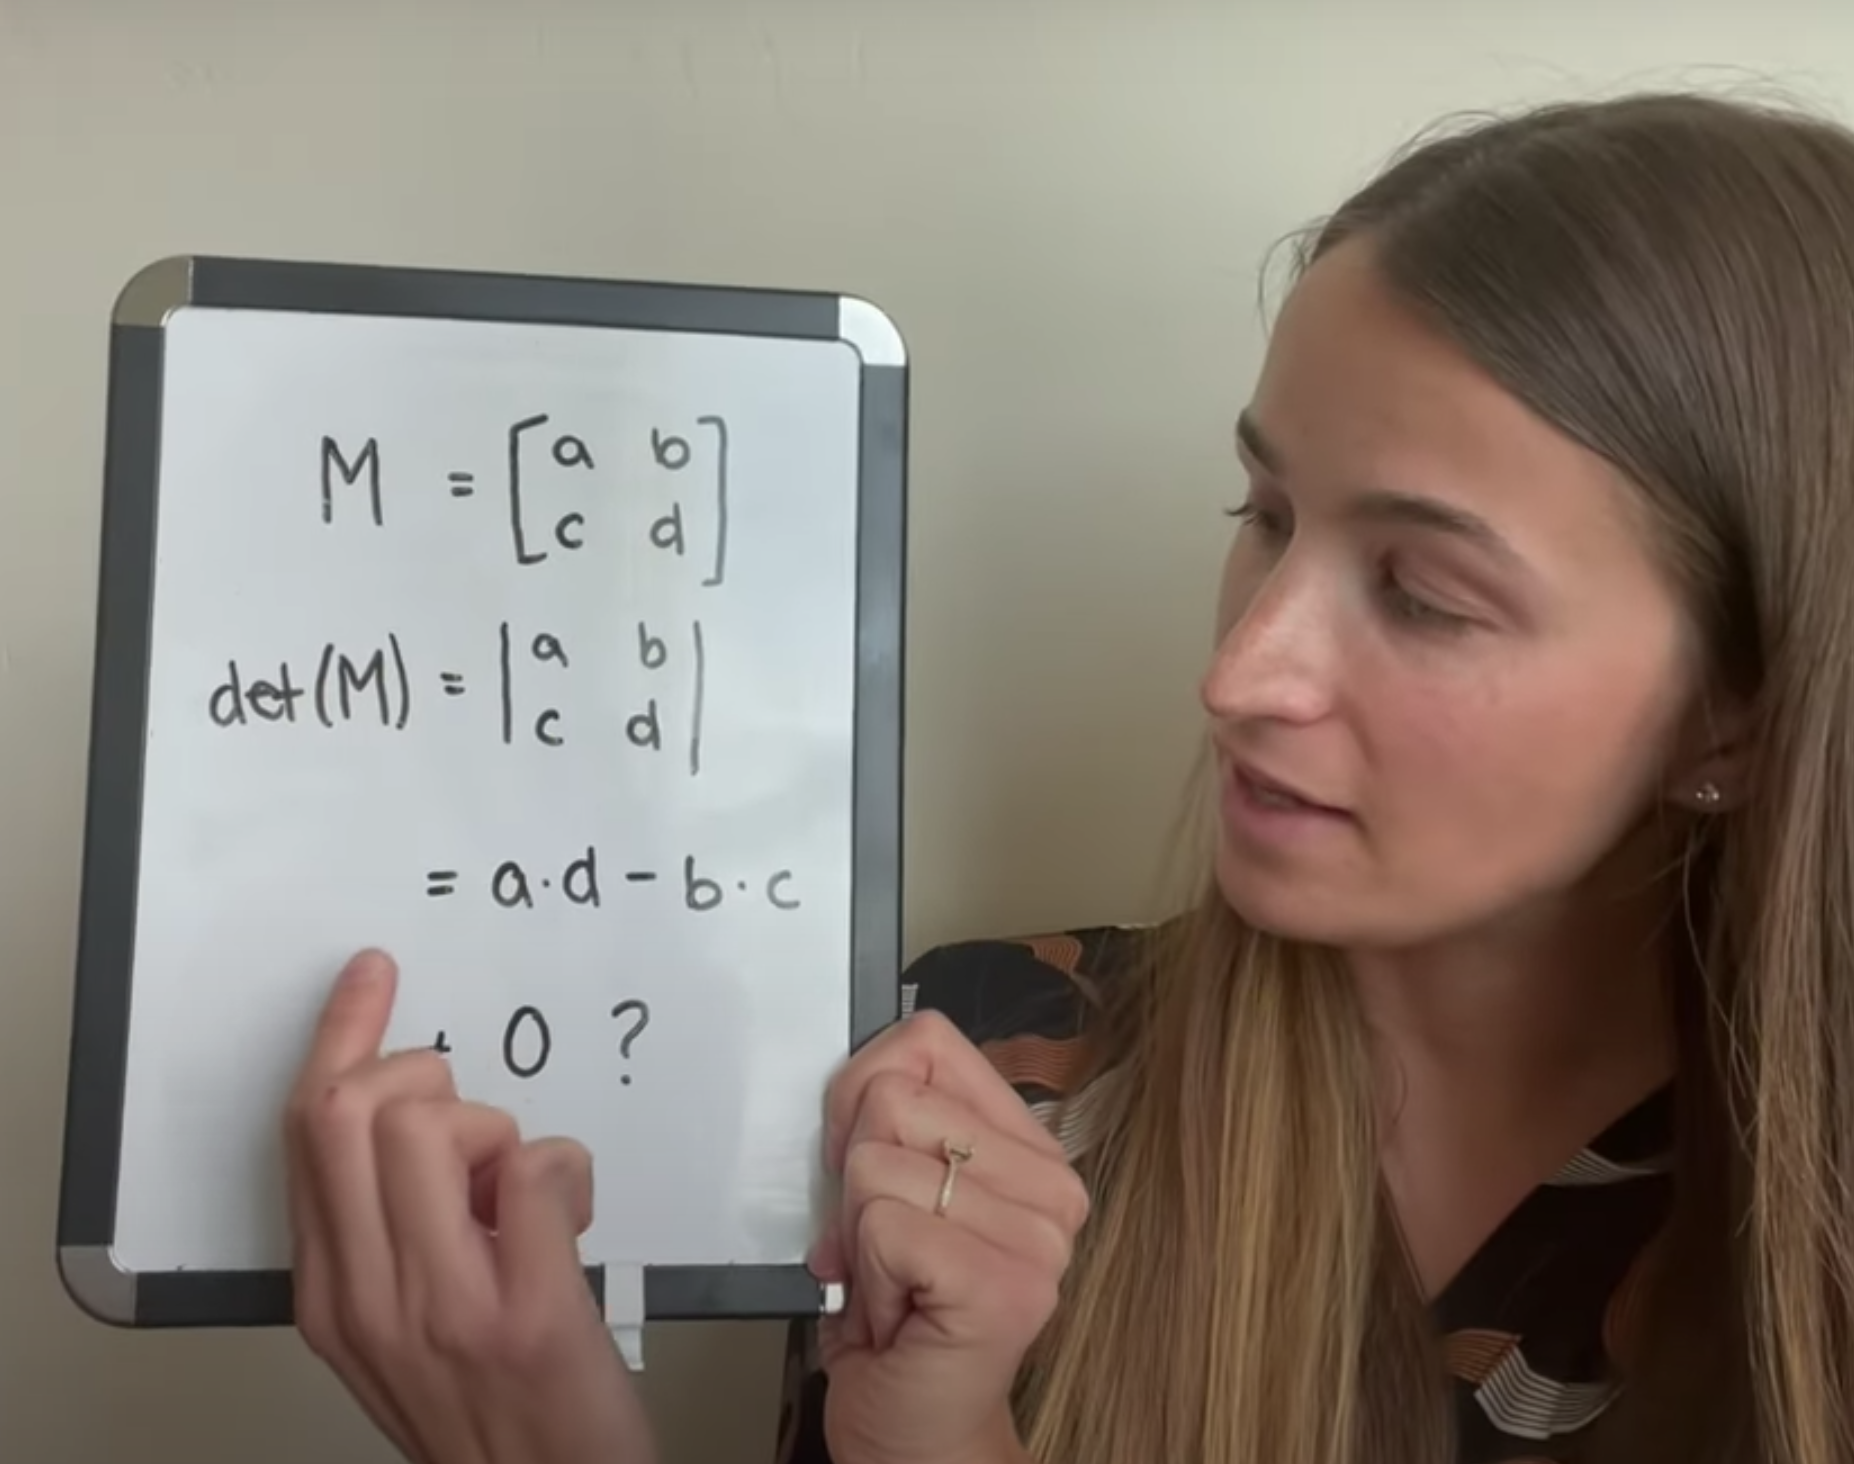 M = [a b
c d]
det(M) = |a b
c d|
= a·d - b·c
0 ?